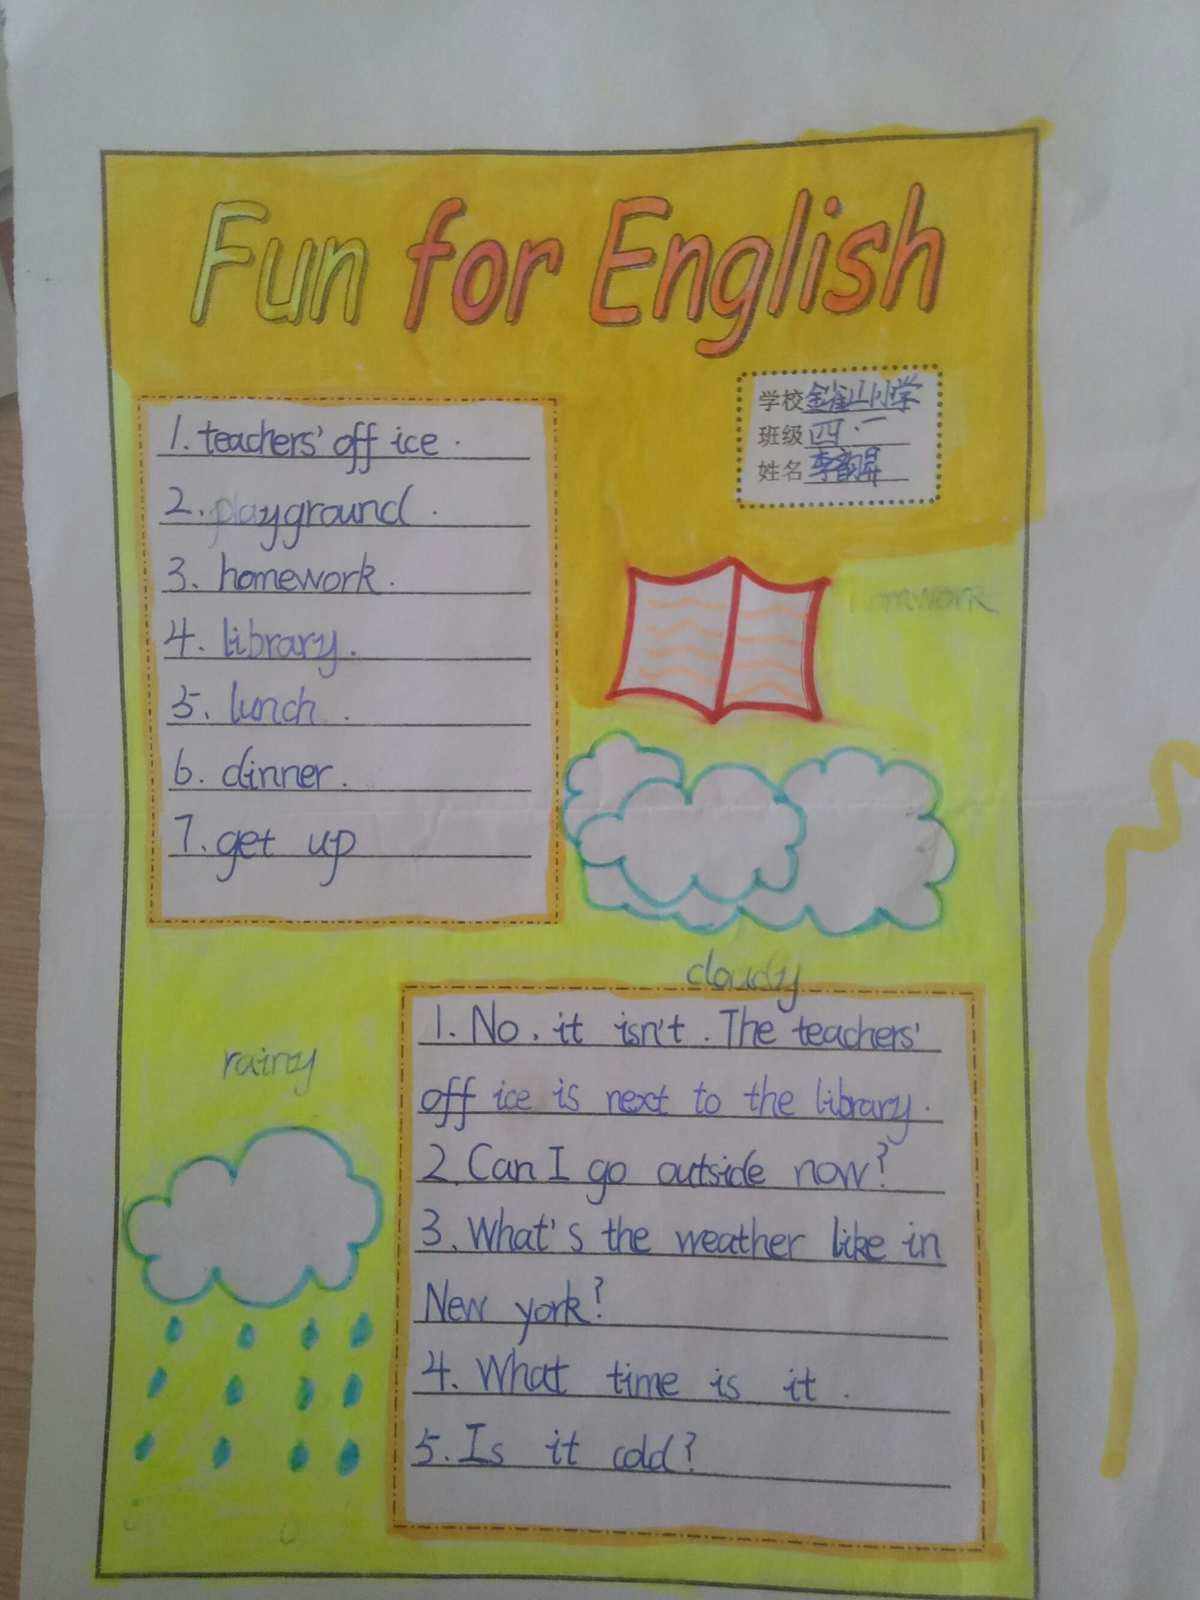 Fun for English
学校 金雀山小学
班级 四·二
姓名 李
1. teachers' office.
2. playground.
3. homework.
4. library.
5. lunch.
6. dinner.
7. get up
homework
cloudy
rainy
1. No, it isn't. The teachers'
office is next to the library.
2. Can I go outside now?
3. What's the weather like in
New york?
4. What time is it.
5. Is it cold?